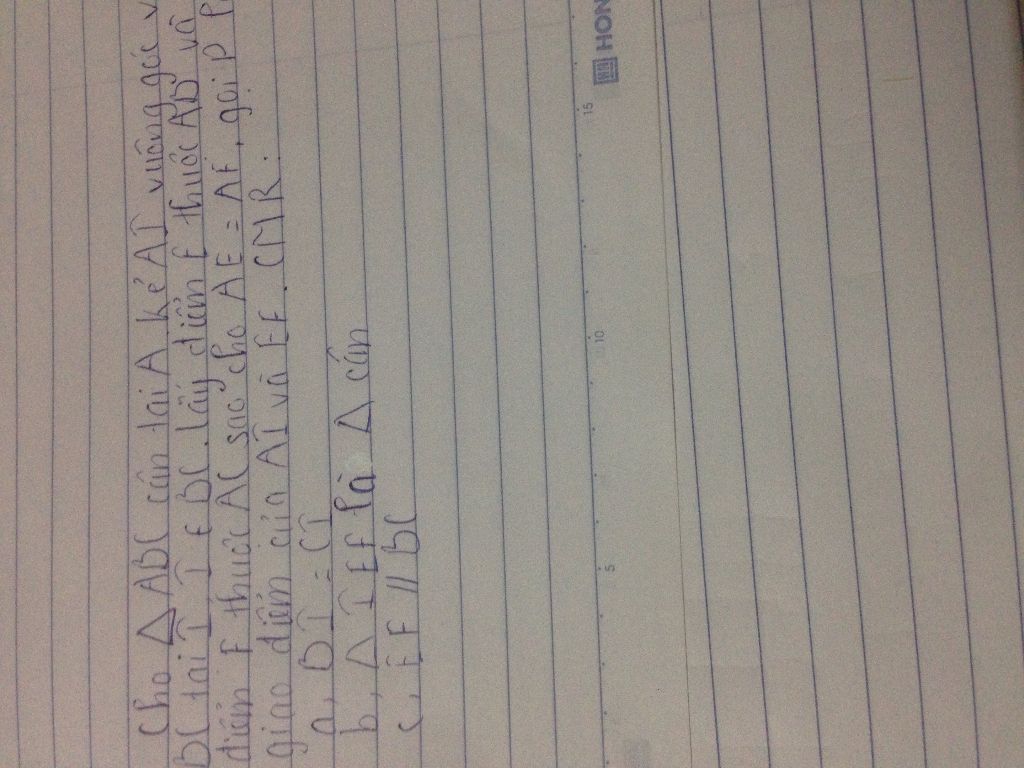 Cho Δ ABC cân tại A kẻ AI vuông góc v
BC tại I I ∈ BC. Lấy điểm E thuộc AB và
điểm F thuộc AC sao cho AE = AF, gọi P
giao điểm của AI và EF. CMR:
a, BI = CI
b, Δ IEF là Δ cân
c, EF // BC
5
10
15
HON